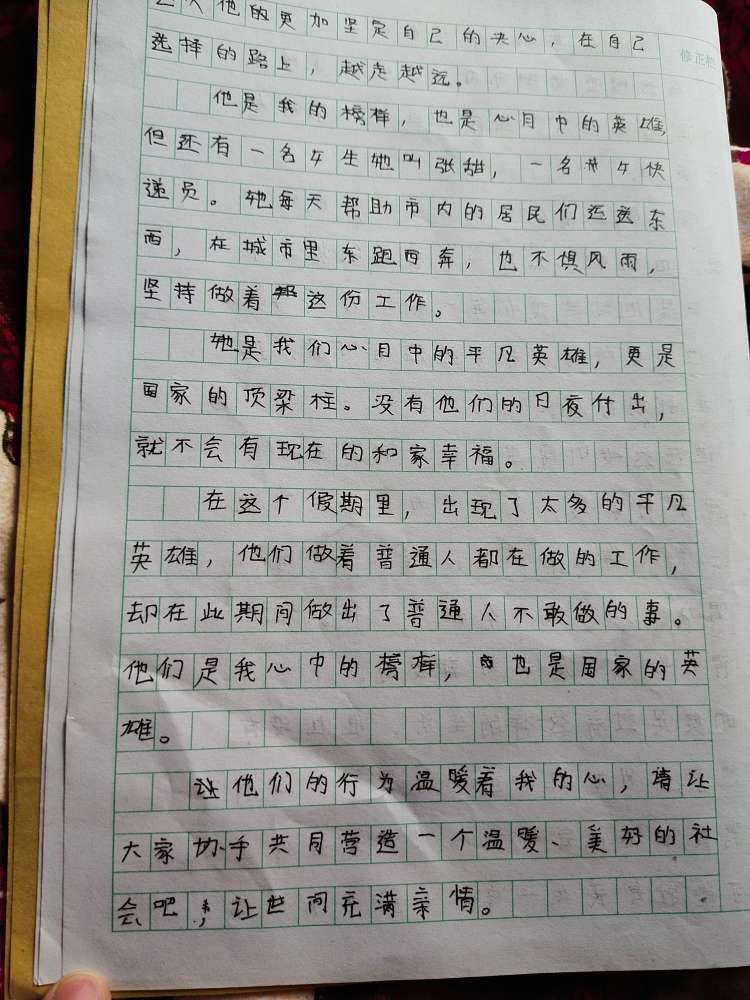 他的更加坚定自己的决心，在自己
修正栏
选择的路上，越走越远。
他是我的榜样，也是心目中的英雄，
但还有一名女生她叫张甜，一名女快
递员。她每天帮助市内的居民们运送东
西，在城市里东跑西奔，也不惧风雨，
坚持做着这份工作。
她是我们心目中的平凡英雄，更是
国家的顶梁柱。没有他们的日夜付出，
就不会有现在的和家幸福。
在这个假期里，出现了太多的平凡
英雄，他们做着普通人都在做的工作，
却在此期间做出了普通人不敢做的事。
他们是我心中的榜样，也是国家的英
雄。
让他们的行为温暖着我的心，请让
大家协手共同营造一个温暖、美好的社
会吧，让世间充满亲情。